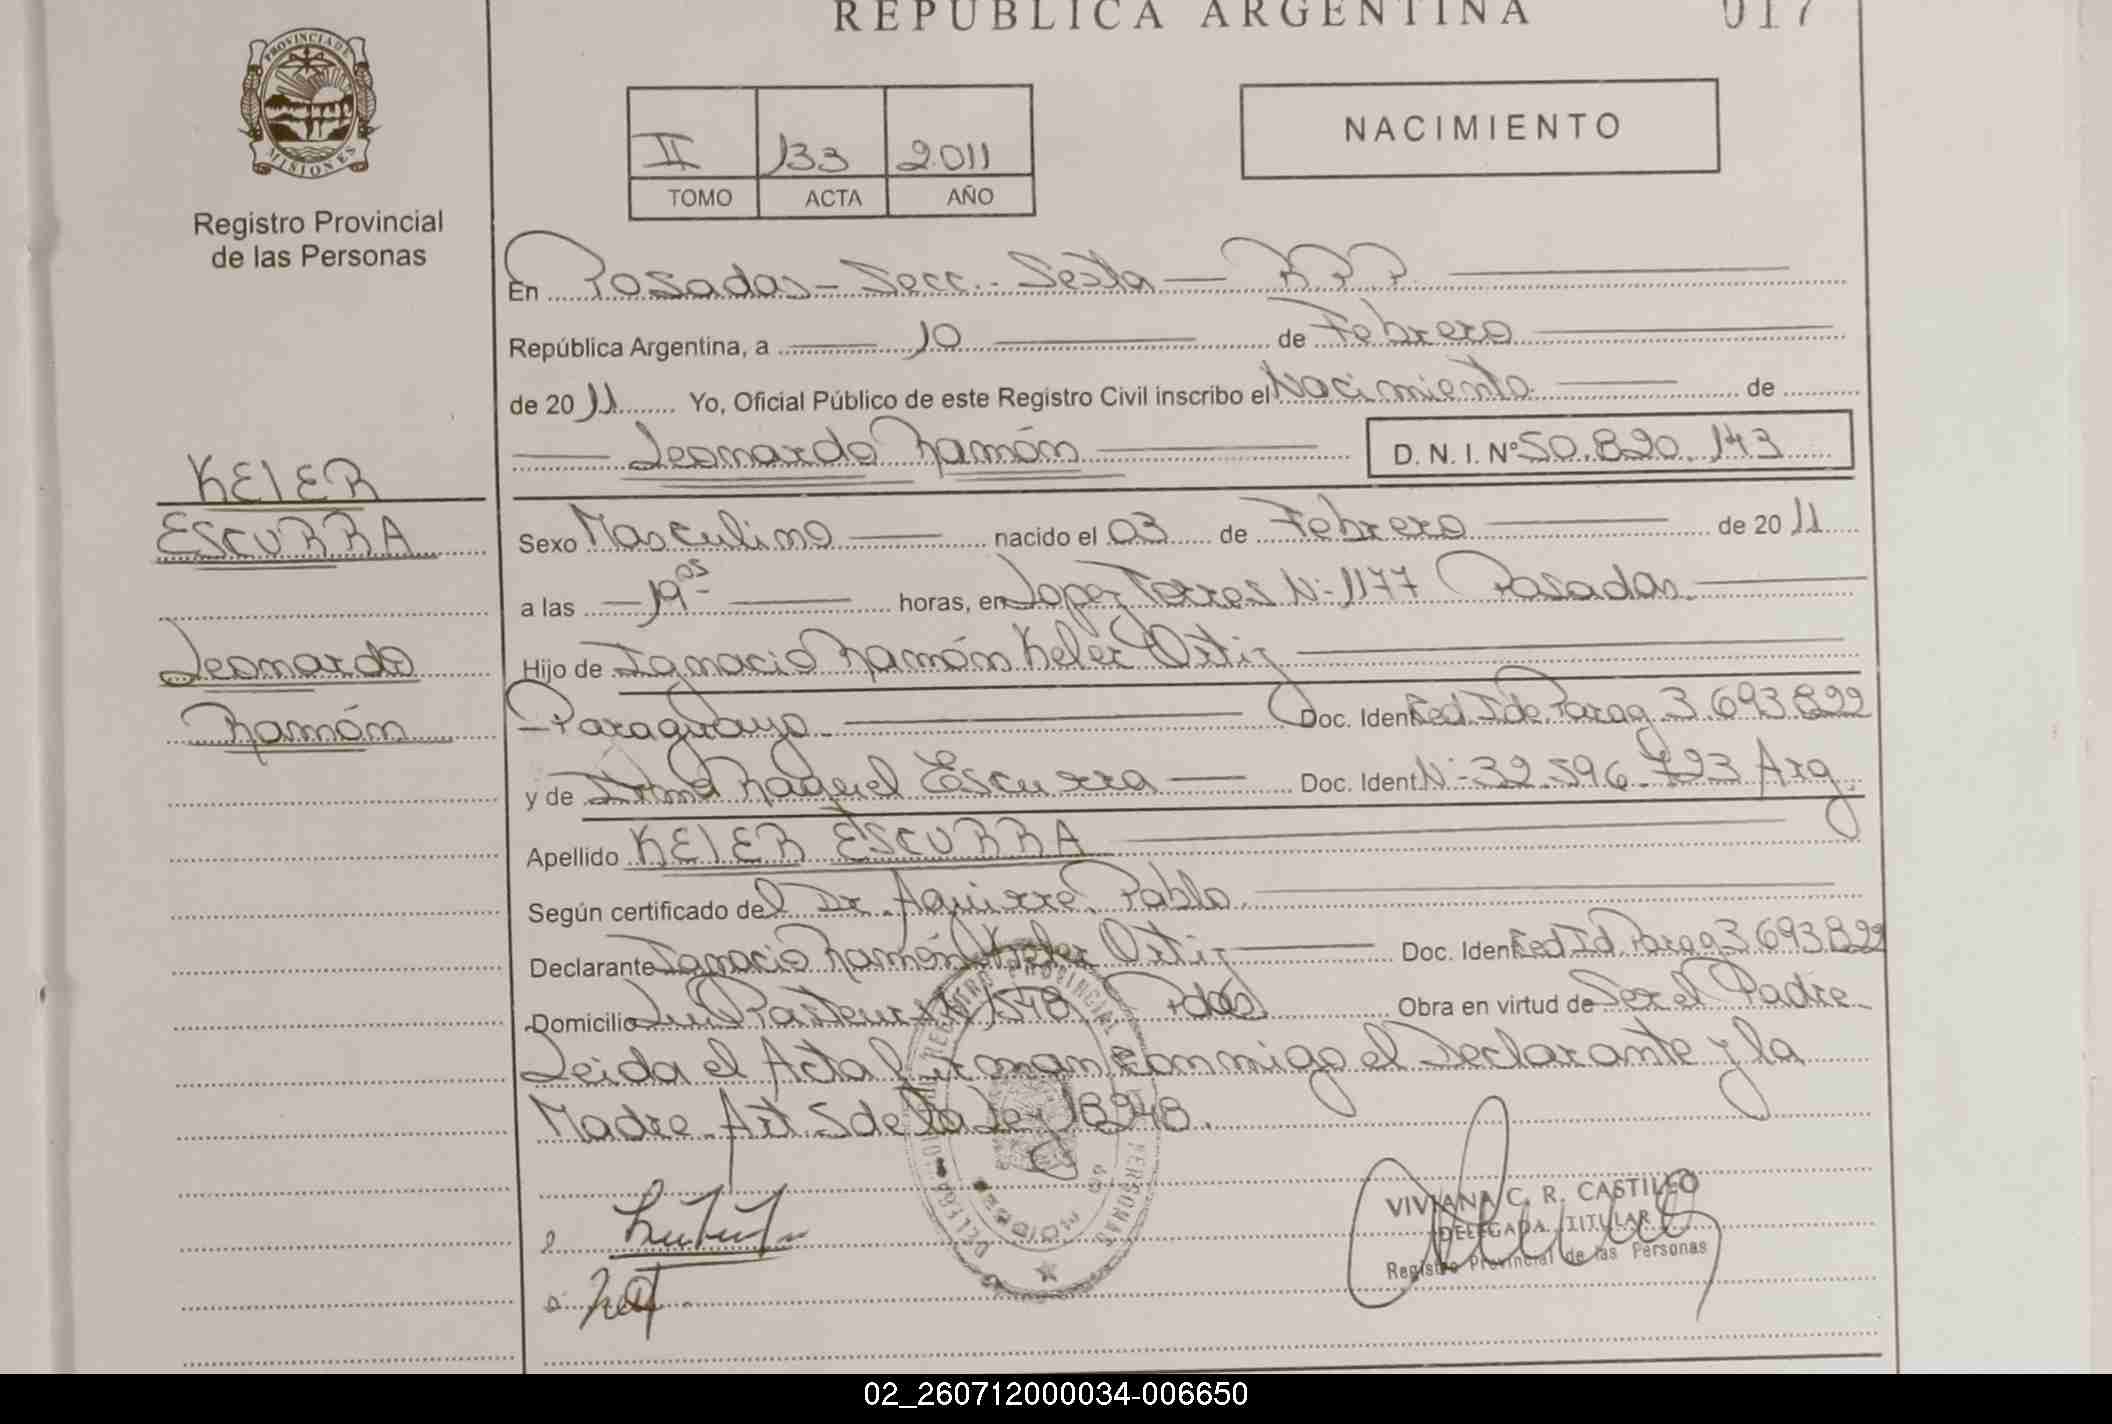 REPUBLICA ARGENTINA
017
PROVINCIA DE
MISIONES
Registro Provincial
de las Personas
II 133 2011
TOMO ACTA AÑO
NACIMIENTO
En Posadas - Secc. - Sexta - R P P
República Argentina, a 10 de Febrero
de 2011 Yo, Oficial Público de este Registro Civil inscribo el Nacimiento de
Leonardo Ramón D. N. I. Nº 50.820.143
KELER
ESCURRA
Leonardo
Ramón
Sexo Masculino nacido el 03 de Febrero de 2011
a las 19 05 horas, en Lopez Torres N- 1177 Posadas
Hijo de Ignacio Ramón Keler Ortiz
Paraguayo Doc. Ident Ced. I de Parag 3.693.822
y de Irma Raquel Escurra Doc. Ident. N- 32.596.723 Arg
Apellido KELER ESCURRA
Según certificado del Dr. Aguirre Pablo
Declarante Ignacio Ramón Keler Ortiz Doc. Ident Ced Id Parag 3.693.822
Domicilio Luis Pasteur N- 1548 Pdas Obra en virtud de Ser el Padre
Leida el Acta firman conmigo el Declarante y la
Madre Art 5 de la Ley 18248.
VIVIANA C. R. CASTILLO
DELEGADA TITULAR
Registro Provincial de las Personas
02_260712000034-006650